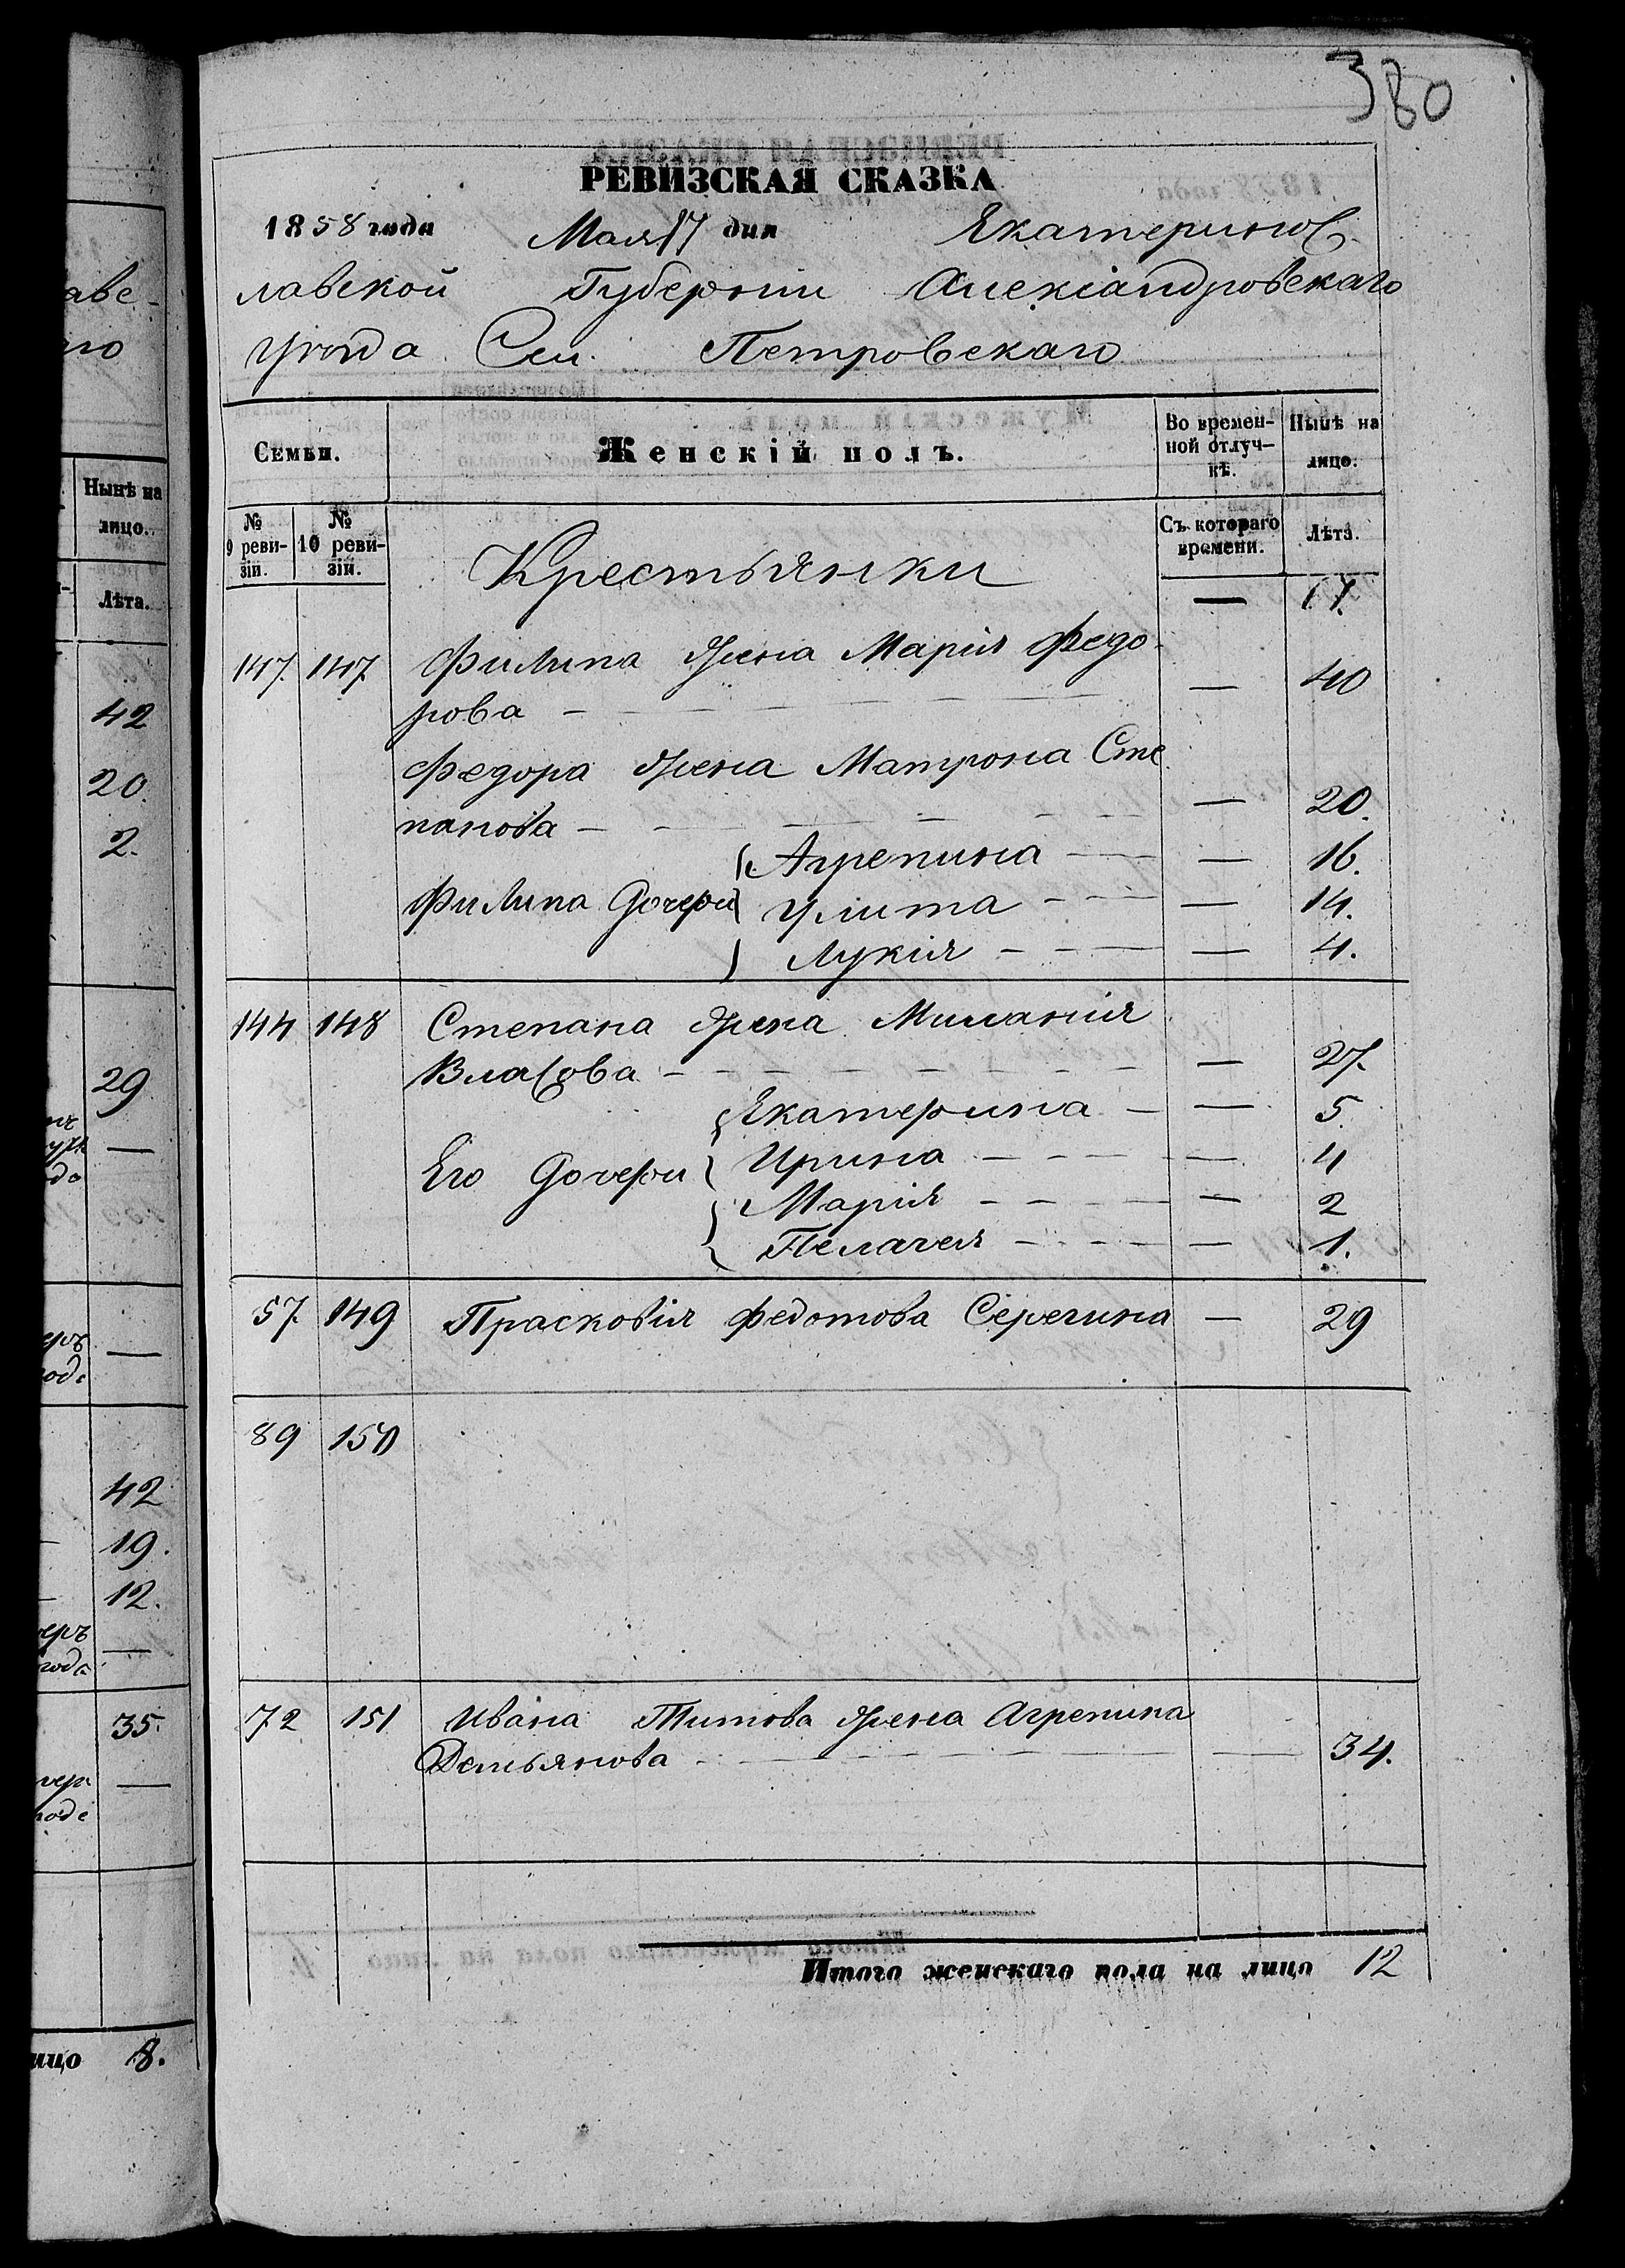 380
РЕВИЗСКАЯ СКАЗКА
1858 года Мая 17 дня Екатеринос-
лавской Губернии Александровскаго
уезда Сел. Петровскаго
Семьи. Женскій полъ. Во времен-ной отлуч-кѣ. Нынѣ на лицо.
№ 9 реви-зіи. № 10 реви-зіи. Крестьянки Съ котораго времени. Лѣта.
— 17.
147. 147 Филипа жена Марія Федо-
рова — 40
Федора жена Матрона Сте
панова — 20.
Агрепина — 16.
Филипа Дочери Улита — 14.
Лукія — 4.
144 148 Степана жена Миланія
Власова — 27.
Екатерина — 5.
Его Дочери Ирина — 4
Марія — 2
Пелагея — 1.
57. 149 Прасковія Федотова Серегина — 29
89 150
72 151 Ивана Титова жена Агрепина
Демьянова — 34.
Итого женскаго пола на лицо 12
аве-
го
Нынѣ на
лицо.
Лѣта.
42
20.
2.
29
—
—
42
19.
12.
—
35.
—
лицо 8.